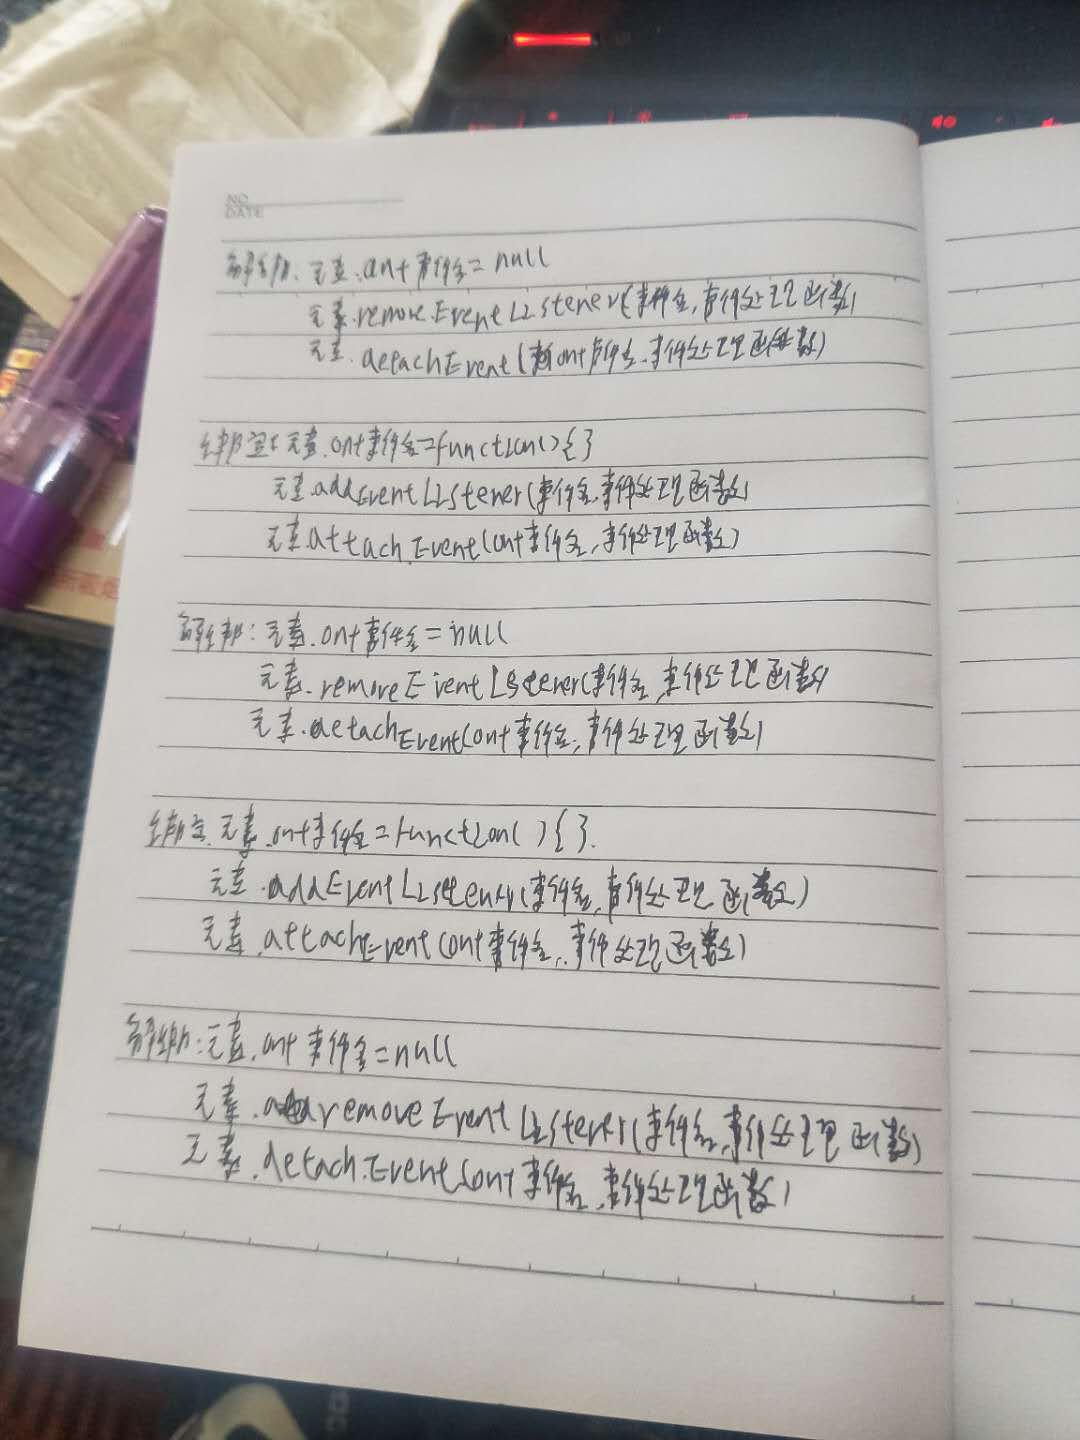 NO
DATE
解绑: 元素.on+事件名 = null
元素.removeEventListener(事件名, 事件处理函数)
元素.detachEvent(on+事件名, 事件处理函数)
绑定: 元素.on+事件名=function(){}
元素.addEventListener(事件名,事件处理函数)
元素.attachEvent(on+事件名,事件处理函数)
解绑: 元素.on+事件名=null
元素.removeEventListener(事件名,事件处理函数)
元素.detachEvent(on+事件名,事件处理函数)
绑定.元素.on+事件名=function(){}.
元素.addEventListener(事件名,事件处理函数)
元素.attachEvent(on+事件名,事件处理函数)
解绑:元素.on+事件名=null
元素.removeEventListener(事件名,事件处理函数)
元素.detach.Event(on+事件名,事件处理函数)